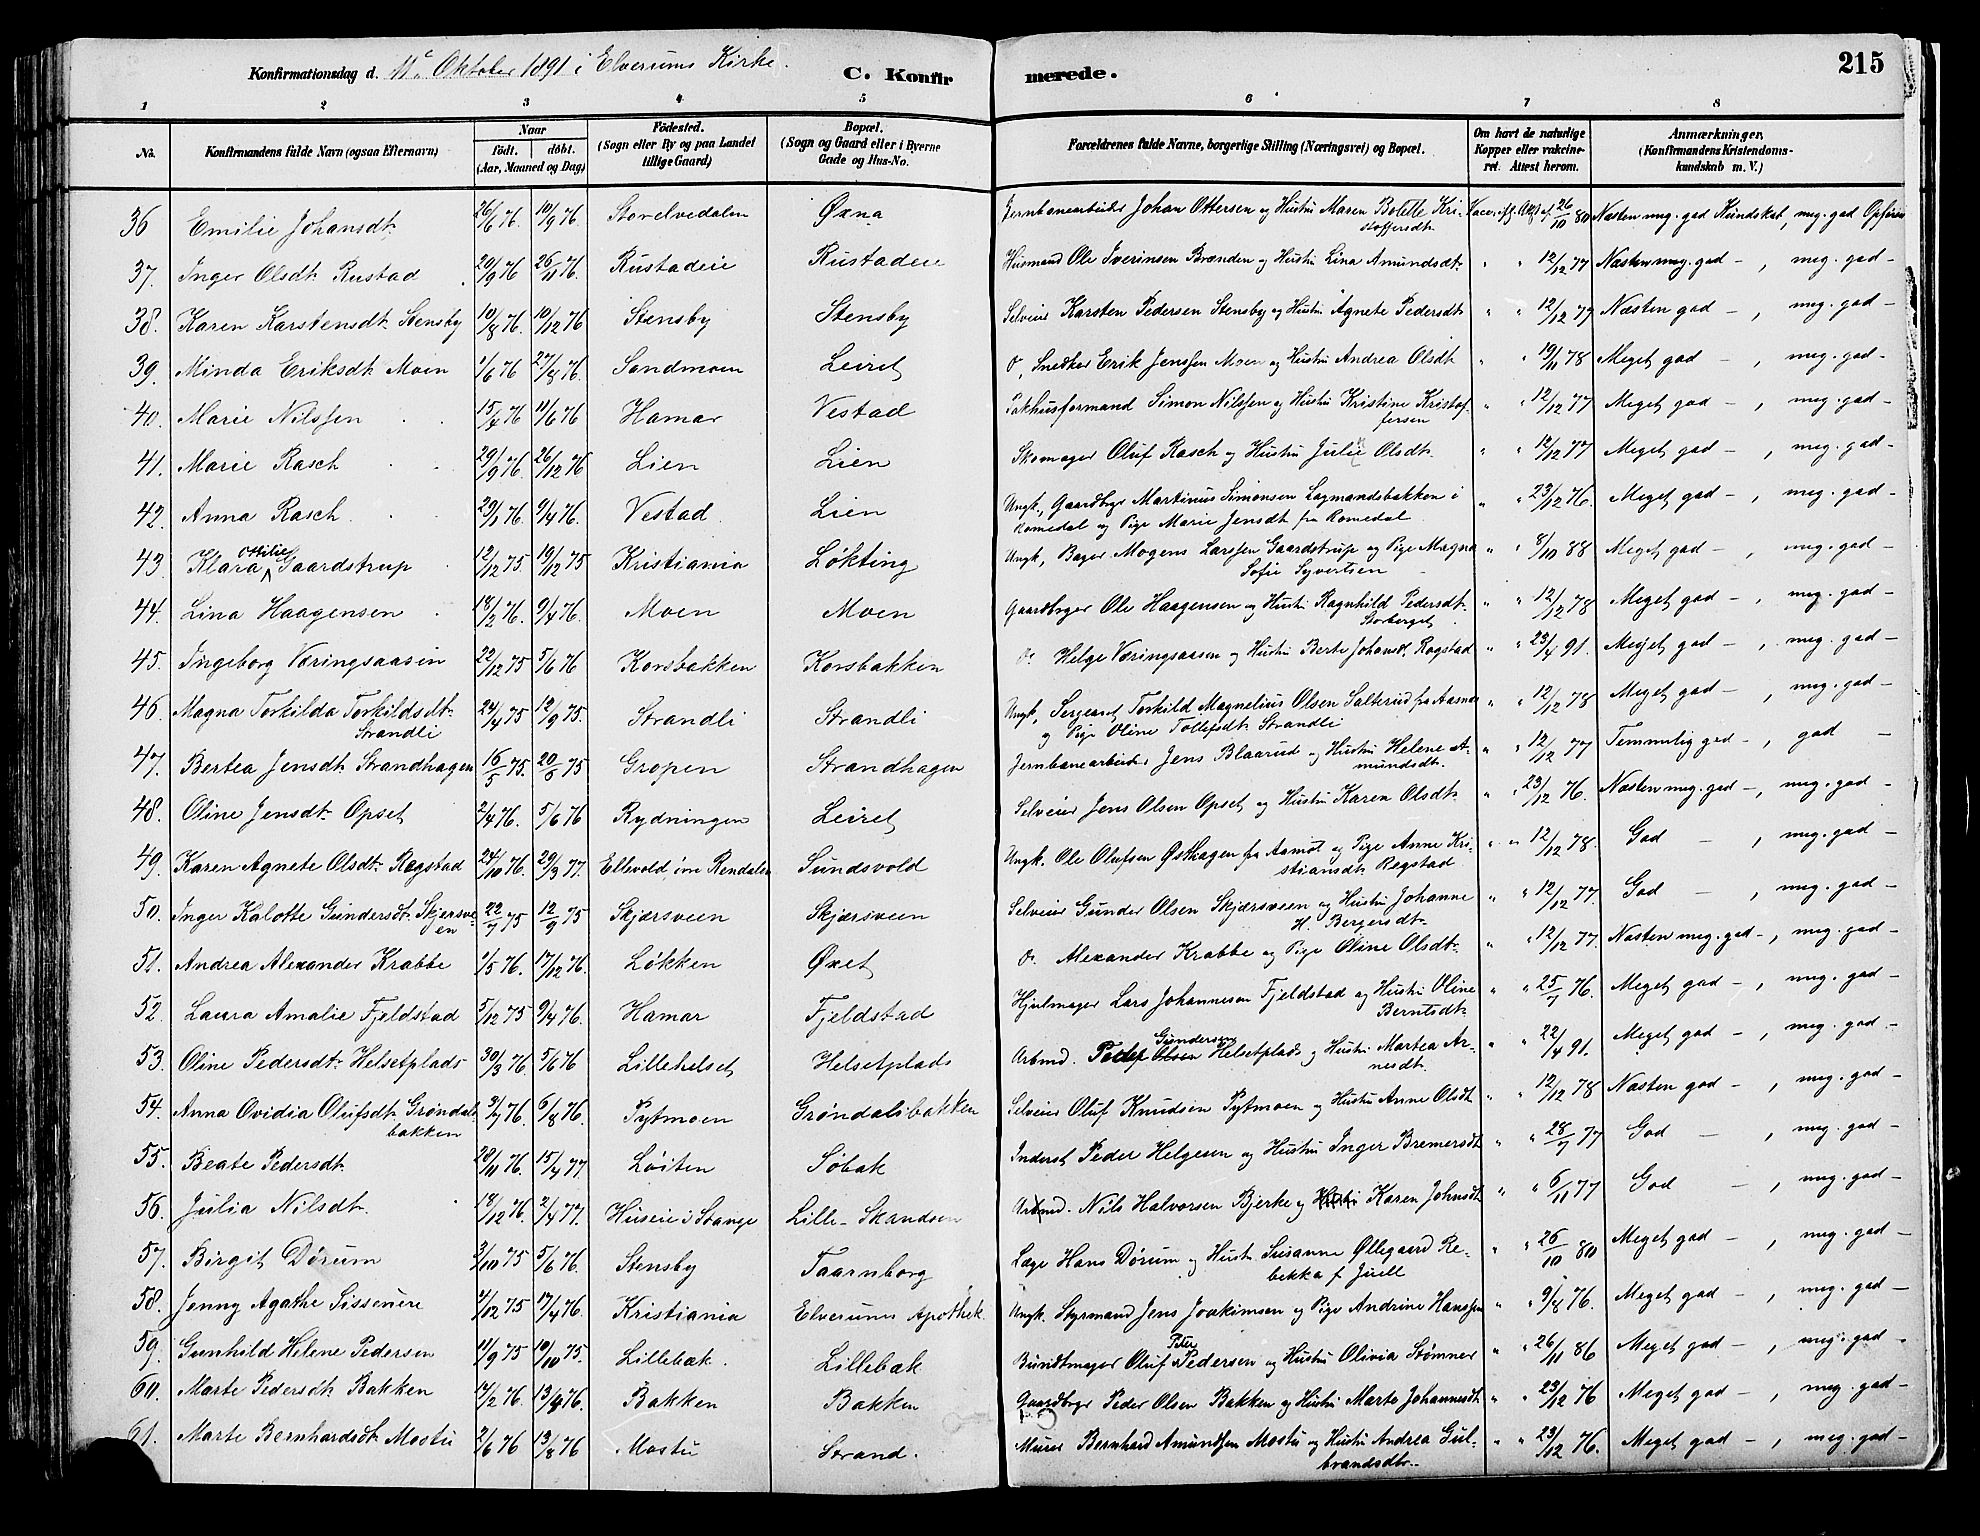 Konfirmationsdag d. 11te Oktober 1891 i Elverums Kirke. C. Konfirmerede. 215
1 2 3 4 5 6 7 8
No. Konfirmandens fulde Navn (ogsaa Efternavn) Naar födt. döbt. (Aar, Maaned og Dag) Födested. (Sogn eller By og paa Landet tillige Gaard) Bopæl. (Sogn og Gaard eller i Byerne Gade og Hus-No. Forældrenes fulde Navne, borgerlige Stilling (Næringsvei) og Bopæl. Om havt de naturlige Kopper eller vakcineret. Attest herom. Anmærkninger, (Konfirmandens Kristendomskundskab m. V.)
36 Emilie Johansdt. 26/6 76 10/9 76 Storelvedalen Øxna Jernbanearbeider Johan Ottersen og Hustru Maren Botette Kristoffersdt. Vacc. ifg. Att. af 26/10 80 Næsten meg. god Kundskab, meg. god Opførsel
37. Inger Olsdt. Rustad 20/9 76 26/11 76. Rustadeie Rustadeie Husmand Ole Iverinsen Brænden og Hustru Lina Amundsdt. " " 12/12 77 Næsten meg. god - , meg. god -
38. Karen Karstensdt. Stensby 10/8 76. 10/12 76 Stensby Stensby Selveier Karsten Pedersen Stensby og Hustru Agnete Pedersdt. " " 12/12 77 Næsten god - , meg. god -
39. Minda Eriksdt. Moen 1/6 76 27/8 76. Sandmoen Leiret O, Snedker Erik Jenssen Moen og Hustru Andrea Olsdt " " 19/11 78 Meget god - , meg. god -
40. Marie Nilssen 15/4 76 11/6 76 Hamar Vestad Pakhusformand Simon Nilssen og Hustru Kristine Kristoffersen " " 12/12 77 Meget god - , meg. god -
41. Marie Rasch 29/9 76. 26/12 76 Lien Lien Skomager Oluf Rasch og Hustru Julie Olsdt. " " 12/12 77 Meget god - , meg. god -
42. Anna Rasch 29/1 76. 9/4 76. Vestad. Lien Ungk., Gaardbrger Martinus Simonsen Lagmandsbakken i Romedal og Pige Marie Jensdt. fra Romedal " " 23/12 76. Meget god - , meg. god -
43. Klara Ottilie Gaardstrup 12/12 75. 19/12 75 Kristiania Løkting Ungk, Bager Mogens Larssen Gaardstrup og Pige Magna Sofie Syvertsen " " 8/10 88 Meget god - , meg. god -
44. Lina Haagensen 18/2 76. 9/4 76. Moen Moen Gaardbrger Ole Haagensen og Hustru Ragnhild Pedersdt. Storberget " " 12/12 78 Meget god - , meg. god -
45. Ingeborg Væringsaasen 22/12 75 5/6 76 Korsbakken Korsbakken O. Helge Væringsaasen og Hustru Berte Johansdt. Rogstad " " 23/4 91. Meget god - , meg. god -
46. Magna Torkilda Torkildsdt. Strandli 24/4 75 12/9 75. Strandli Strandli Ungk, Sergeant Torkild Magnelius Olsen Salterud fra Aasnes og Pige Oline Tollefsdt. Strandli " " 12/12 78 Meget god - , meg. god -
47. Bertea Jensdt. Strandhagen 16/5 75. 20/6 75 Gropen Strandhagen Jernbanearbeider Jens Blaarud og Hustru Helene Amundsdt. " " 12/12 77 Temmelig god - , god -
48. Oline Jensdt. Opset 2/4 76. 5/6 76 Rydningen Leiret Selveier Jens Olsen Opset og Hustru Karen Olsdt. " " 23/12 76. Næsten meg. god - , meg. god -
49. Karen Agnete Olsdt. Rogstad 24/10 76. 29/3 77. Ellevold, øvre Rendalen Sundsvold Ungk. Ole Olufsen Østhagen fra Aamot og Pige Anne Kristiansdt. Rogstad " " 12/12 78. God - , meg. god -
50. Inger Kalotte Gundersdt. Skjærsveen 22/7 75 12/9 75 Skjærsveen Skjærsveen Selveier Gunder Olsen Skjærsveen og Hustru Johanne H. Bergersdt. " " 12/12 77. God - , meg. god -
51. Andrea Alexander Krabbe 1/5 76. 17/12 76. Løkken Øxet O. Alexander Krabbe og Pige Oline Olsdt. " " 12/12 77. Næsten meg. god - , meg. god -
52. Laura Amalie Fjeldstad 5/12 75 9/4 76. Hamar Fjeldstad Hjulmager Lars Johannesen Fjeldstad og Hustru Oline Berntsdt. " " 25/7 76. Meget god - , meg. god -
53. Oline Pedersdt. Helsetplads 30/3 76. 5/6 76 Lillehelset Helsetplads Arbmd. Peder Olsen Gundersen Helsetplads og Hustru Martea Arnesdt. " " 22/4 91. Meget god - , meg. god -
54. Anna Ovidia Olufsdt. Grøndalsbakken 3/7 76. 6/8 76. Pytmoen Grøndalsbakken Selveier Oluf Knudsen Pytmoen og Hustru Anne Olsdt " " 12/12 78 Næsten god - , meg. god -
55. Beate Pedersdt. 28/11 76. 15/4 77. Løiten Søbak Inderst Peder Helgesen og Hustru Inger Bremersdt. " " 28/7 77 God - , meg. god -
56. Julia Nilsdt. 18/12 76. 2/4 77. Huseie i Stange Lille-Skandsen Arbmd. Nils Halvorsen Bjerke og Hustru Karen Johnsdt. " " 6/11 77 God - , meg. god -
57. Birgit Dørum 3/10 75 5/6 76. Stensby Taarnborg Læge Hans Dørum og Hustr. Susanne Øllegaard Rebekka f. Juell " " 26/10 80 Meget god - , meg. god -
58. Jenny Agathe Sissenere 4/12 75 17/4 76. Kristiania Elverums Apothek. Ungk. Styrmand Jens Joakimsen og Pige Andrine Hanssen " " 9/8 76. Meget god - , meg. god -
59. Gunhild Helene Pedersen 11/9 75 10/10 75. Lillebæk. Lillebæk Bundtmager Oluf Peter Pedersen og Hustru Olivia Strømner " " 26/11 86 Meget god - , meg. god -
60. Marte Pedersdt. Bakken 17/2 76. 13/4 76. Bakken Bakken Gaardbrger Peder Olsen Bakken og Hustru Marte Johannesdt. " " 23/12 76 Meget god - , meg. god -
61. Marte Bernhardsdt. Mostu 2/6 76 13/8 76 Mostu Strand. Murer Bernhard Amundsen Mostu og Hustru Andrea Gulbrandsdtr. " " 23/12 76. Meget god - , meg. god -